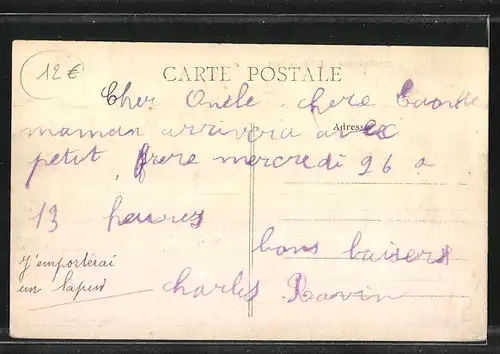 12 €
CARTE POSTALE
Cher Oncle chere Tante
Adresse
maman arrivera avec
petit frere mercredi 26 a
13 heures
bons baisers
J'emporterai
un lapin
Charles Ravin